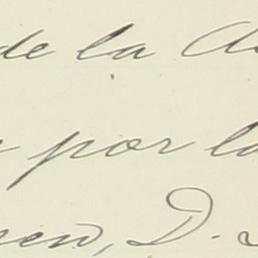 de la A
por la
en, D.